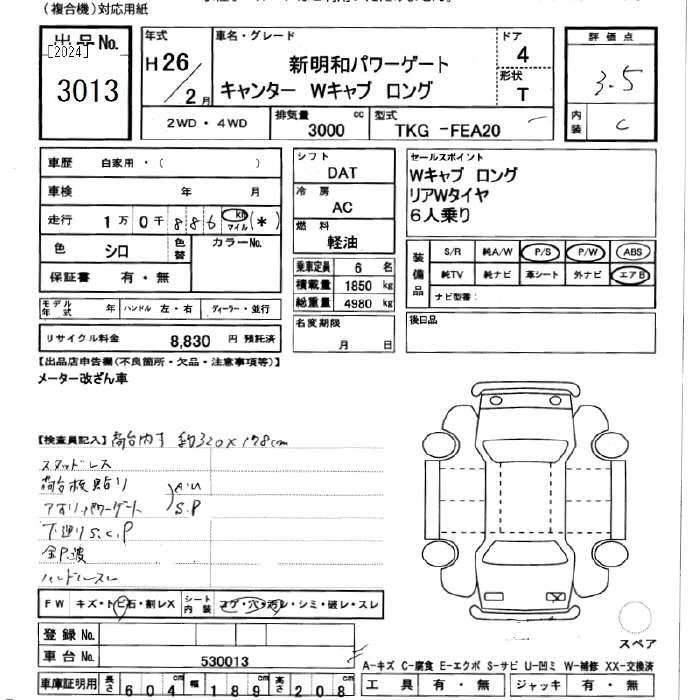 (複合機)対応用紙
出品No.
[2024]
3013
年式
H26/2月
車名・グレード
新明和パワーゲート
キャンター Wキャブ ロング
ドア
4
形状
T
評価点
3.5
内装
C
2WD・4WD
排気量
3000 cc
型式
TKG -FEA20
車歴 自家用・( )
車検 年 月
走行 1万 0千 886 km マイル (*)
色 シロ 色替 カラーNo.
保証書 有・無
モデル年式 年 ハンドル 左・右 ディーラー・並行
リサイクル料金 8,830 円 預託済
シフト
DAT
冷房
AC
燃料
軽油
乗車定員 6 名
積載量 1850 kg
総重量 4980 kg
名変期限
月 日
セールスポイント
Wキャブ ロング
リアWタイヤ
6人乗り
装備品
S/R 純A/W P/S P/W ABS
純TV 純ナビ 革シート 外ナビ エアB
ナビ型番:
後日品
【出品店申告欄(不良箇所・欠品・注意事項等)】
メーター改ざん車
【検査員記入】荷台内寸 約320×178cm
スタッドレス
荷台板貼り A.U
アオリ、パワーゲート S.P
下廻りS.C.P
ハンドルスレ
FW キズ・トビ石・割レX シート内装 コゲ・穴・汚レ・シミ・破レ・スレ
登録No.
車台No. 530013
車庫証明用 長さ 604 cm 幅 189 cm 高さ 208 cm
X
スペア
A-キズ C-腐食 E-エクボ S-サビ U-凹ミ W-補修 XX-交換済
工具 有・無 ジャッキ 有・無